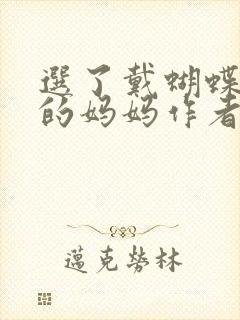 選了戴蝴蝶
的妈妈作者
邁克勞林